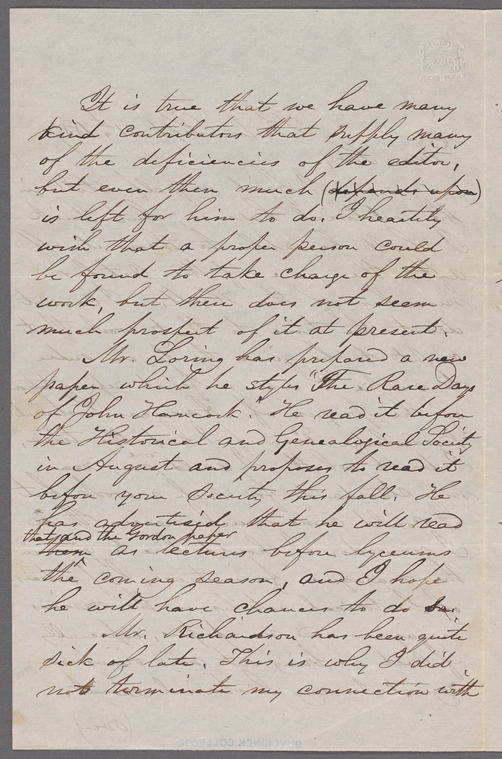 It is true that we have many
kind contributors that supply many
of the deficiencies of the editor,
but even then much (depends upon)
is left for him to do. I heartily
wish that a proper person could
be found to take charge of the
work, but there does not seem
much prospect of it at present.
Mr. Loring has prepared a new
paper which he styles "The Rare Days
of John Hancock." He read it before
the Historical and Genealogical Society
in August and proposes to read it
before your Society this fall. He
has advertised that he will read
that and the Gordon paper
them as lectures before lyceums
the coming season, and I hope
he will have chances to do so.
Mr. Richardson has been quite
sick of late. This is why I did
not terminate my connection with
(over)